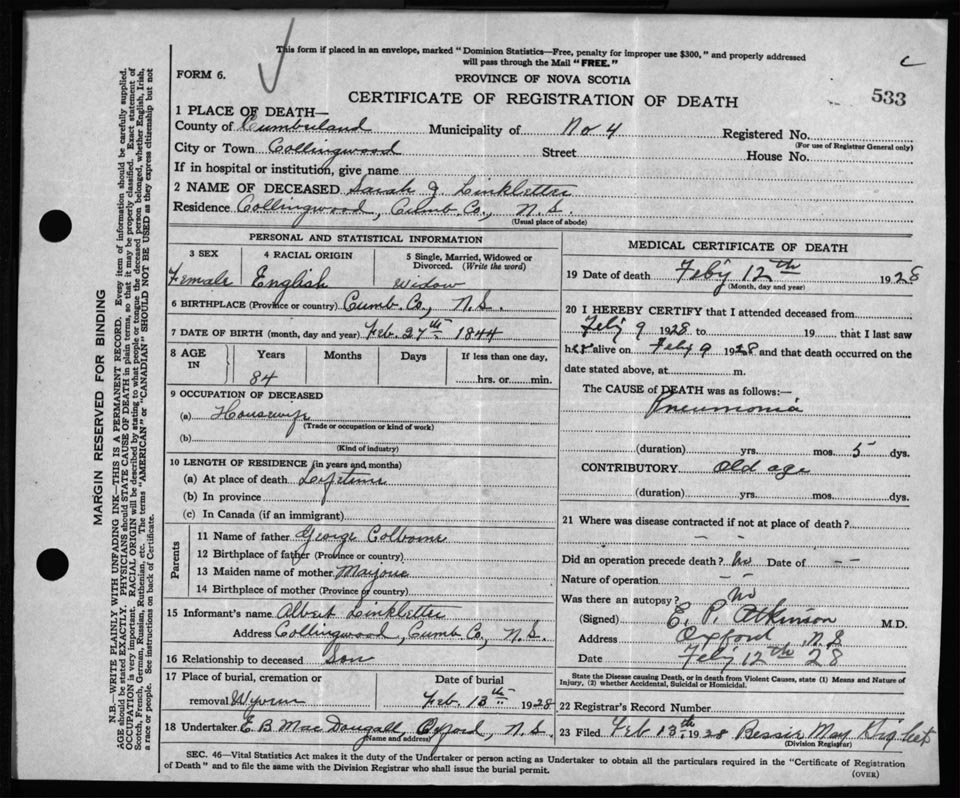 This form if placed in an envelope, marked "Dominion Statistics—Free, penalty for improper use $300," and properly addressed
will pass through the Mail "FREE."
FORM 6.
PROVINCE OF NOVA SCOTIA
CERTIFICATE OF REGISTRATION OF DEATH
533
1 PLACE OF DEATH—
County of Cumberland Municipality of No 4 Registered No.
(For use of Registrar General only)
City or Town Collingwood Street House No.
If in hospital or institution, give name
2 NAME OF DECEASED Sarah J Linkletter
Residence Collingwood, Cumb. Co., N.S.
(Usual place of abode)
PERSONAL AND STATISTICAL INFORMATION
3 SEX 4 RACIAL ORIGIN 5 Single, Married, Widowed or
Divorced. (Write the word)
Female English Widow
6 BIRTHPLACE (Province or country) Cumb. Co., N.S.
7 DATE OF BIRTH (month, day and year) Feb. 27th 1844
8 AGE
IN
Years Months Days If less than one day,
84 hrs. or min.
9 OCCUPATION OF DECEASED
(a) Housewife
(Trade or occupation or kind of work)
(b)
(Kind of industry)
10 LENGTH OF RESIDENCE (in years and months)
(a) At place of death Lifetime
(b) In province
(c) In Canada (if an immigrant)
Parents
11 Name of father George Colborne
12 Birthplace of father (Province or country)
13 Maiden name of mother
14 Birthplace of mother (Province or country)
15 Informant's name Albert Linkletter
Address Collingwood, Cumb Co, N.S.
16 Relationship to deceased Son
17 Place of burial, cremation or Date of burial
removal Wyvern Feb. 13th 1928
18 Undertaker E B MacDougall Oxford, N.S.
(Name and address)
MEDICAL CERTIFICATE OF DEATH
19 Date of death Feby 12th 1928
(Month, day and year)
20 I HEREBY CERTIFY that I attended deceased from
Feby 9 1928 to 19 that I last saw
her alive on Feby 9 1928 and that death occurred on the
date stated above, at m.
The CAUSE of DEATH was as follows:—
Pneumonia
(duration) yrs. mos. 5 dys.
CONTRIBUTORY Old age
(duration) yrs. mos. dys.
21 Where was disease contracted if not at place of death?
– –
Did an operation precede death? No Date of – –
Nature of operation – –
Was there an autopsy? No
(Signed) E. P. Atkinson M.D.
Address Oxford N.S
Date Feby 12th 28
State the Disease causing Death, or in Death from Violent Causes, state (1) Means and Nature of
Injury, (2) whether Accidental, Suicidal or Homicidal.
22 Registrar's Record Number
23 Filed Feb 13th 1928 Bessie May
(Division Registrar)
SEC. 46—Vital Statistics Act makes it the duty of the Undertaker or person acting as Undertaker to obtain all the particulars required in the "Certificate of Registration
of Death" and to file the same with the Division Registrar who shall issue the burial permit.
(OVER)
MARGIN RESERVED FOR BINDING
N.B.—WRITE PLAINLY WITH UNFADING INK—THIS IS A PERMANENT RECORD. Every item of information should be carefully supplied.
AGE should be stated EXACTLY. PHYSICIANS should STATE CAUSE OF DEATH in plain terms, so that it may be properly classified. Exact statement of
OCCUPATION is very important. RACIAL ORIGIN will be described by stating to what people or tongue the deceased person belonged, whether English, Irish,
Scotch, French, German, Russian, Ruthenian, etc. The terms "AMERICAN" or "CANADIAN" SHOULD NOT BE USED as they express citizenship but not
a race or people. See instructions on back of Certificate.